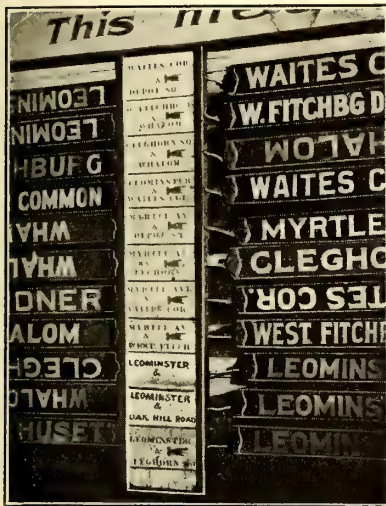 This
LEOMINS
LEOMINS
HBURG
COMMON
WHA
WHAL
DNER
ALOM
CLEGH
WHALO
HUSET
WAITES COR
&
DEPOT SQ.
&
WHALOM
CLEGHORN SQ
&
WHALOM
LEOMINSTER
&
WAITES COR
&
&
MYRTLE AVE
&
WAITES COR
&
LEOMINSTER
&
LEOMINSTER
&
OAK HILL ROAD
LEOMINSTER
&
WAITES C
W. FITCHBG D
HALOM
WAITES C
MYRTLE
CLEGHO
TES COR.
WEST FITCH
LEOMINS
LEOMINS
LEOMIN